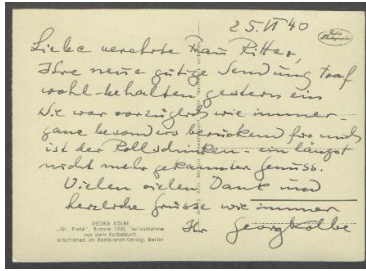 25.VI 40
Liebe verehrte Frau Ritter,
Ihre neue gütige Sendung traf
wohl-behalten gestern ein
Sie war vorzüglich wie immer -
ganz besonders berückend für mich
ist der Rollschinken - ein längst
nicht mehr gekannter Genuss.
Vielen vielen Dank und
herzliche Grüsse wie immer
Ihr Georg Kolbe
GEORG KOLBE
„Gr. Pietà", Bronze 1930, Teilaufnahme
aus dem Kolbebuch
erschienen im Rembrandt-Verlag, Berlin